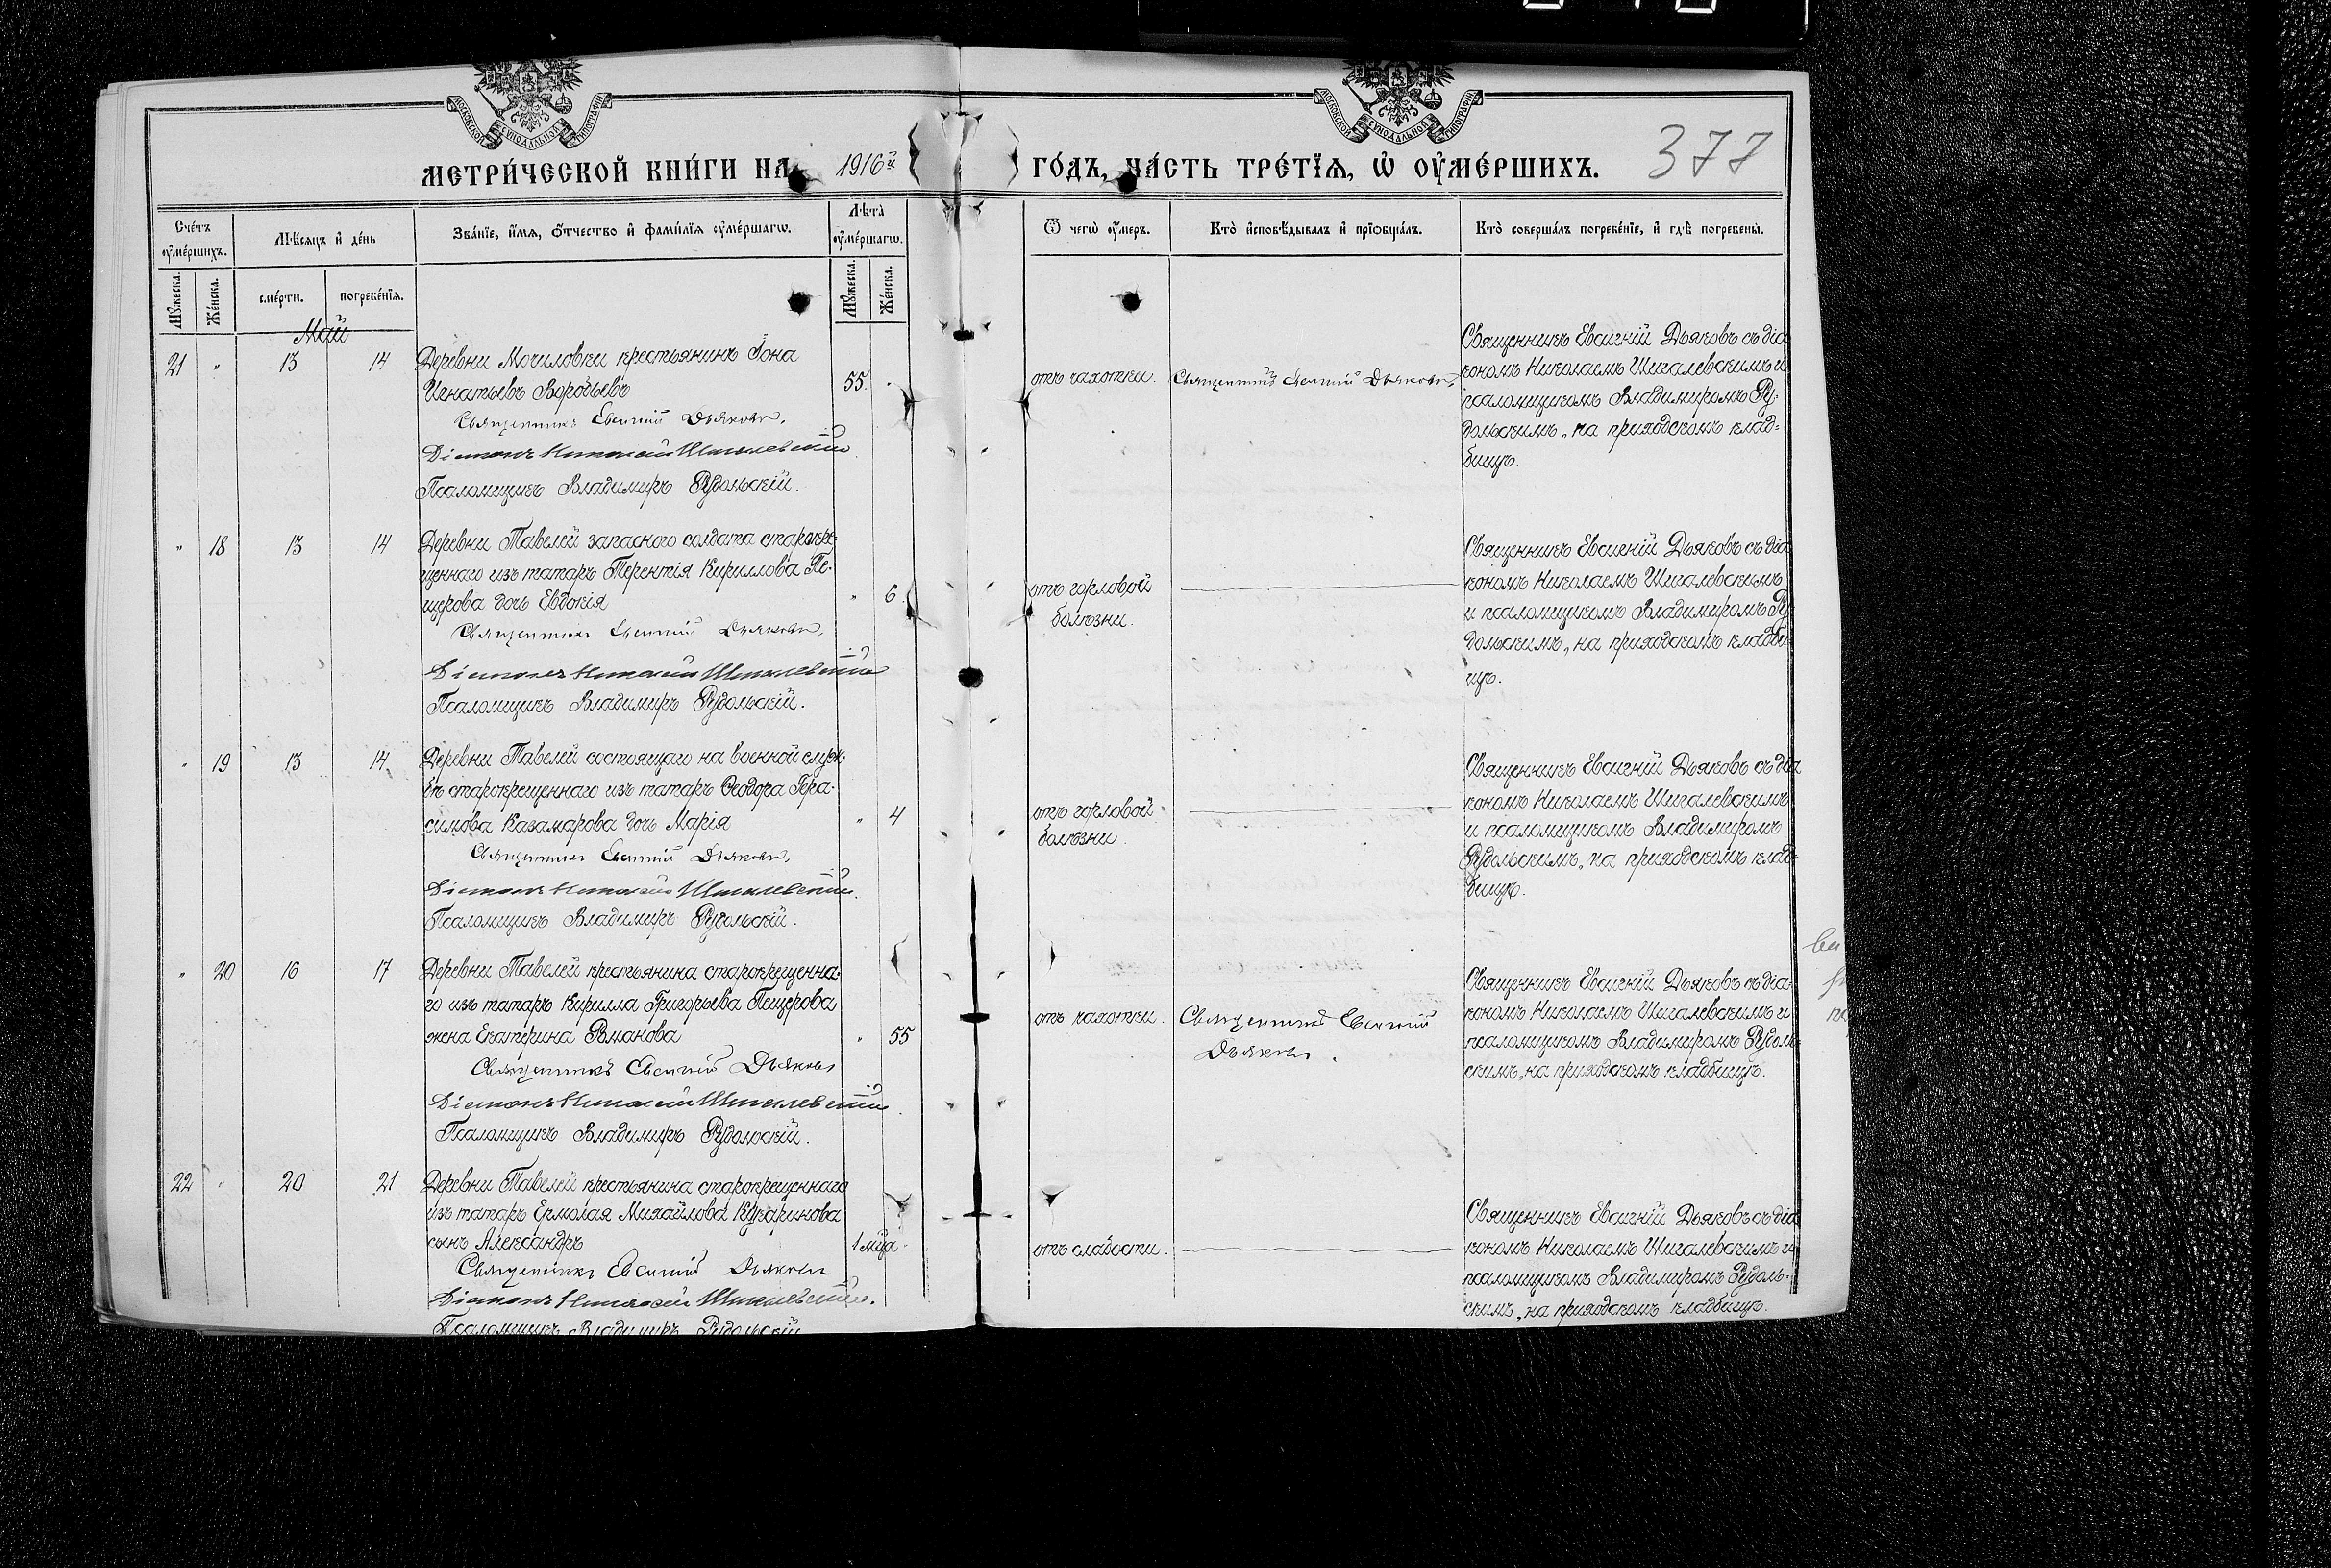 МОСКОВСКОЙ СѴНОДАЛЬНОЙ ТИПОГРАФІИ
МОСКОВСКОЙ СѴНОДАЛЬНОЙ ТИПОГРАФІИ
МЕТРИ́ЧЕСКОЙ КНИ́ГИ НА 1916 й
ГО́ДЪ, ЧА́СТЬ ТРЕ́ТЇѦ, Ѡ҆ ОУ҆МЕ́РШИХЪ.
377
Сче́тъ оу҆ме́ршихъ.
Мꙋ́жеска.
Же́нска.
Мѣ́сяцъ и҆ де́нь
сме́рти.
погребе́нїѧ.
Зва́нїе, и҆́мѧ, ѻ҆́тчество и҆ фами́лїѧ оу҆ме́ршагѡ.
Лѣ́та оу҆ме́ршагѡ.
Мꙋ́жеска.
Же́нска.
Ѿ чегѡ̀ оу҆́меръ.
Кто̀ и҆сповѣ́дывалъ и҆ прїѻбща́лъ.
Кто̀ соверша́лъ погребе́нїе, и҆ гдѣ̀ погребены̀.
Май
21 " 13 14
Деревни Мочиловки крестьянинъ Іона
Игнатьевъ Воробьевъ
55 "
Священникъ Евгеній Дьяковъ.
Діаконъ Николай Шигалевскій.
Псаломщикъ Владимиръ Рудольскій.
отъ чахотки.
Священникъ Евгеній Дьяковъ.
Священникъ Евгеній Дьяковъ съ діа
кономъ Николаемъ Шигалевскимъ и
псаломщикомъ Владимиромъ Ру-
дольскимъ, на приходскомъ клад=
бищѣ.
" 18 13 14
Деревни Тавелей запасного солдата старокре-
щеннаго изъ татаръ Терентія Кириллова Пе-
щерова дочь Евдокія
" 6
Священникъ Евгеній Дьяковъ.
Діаконъ Николай Шигалевскій
Псаломщикъ Владимиръ Рудольскій.
отъ горловой
болѣзни.
Священникъ Евгеній Дьяковъ съ діа
кономъ Николаемъ Шигалевскимъ
и псаломщикомъ Владимиромъ Ру
дольскимъ, на приходскомъ кладби
щѣ.
" 19 13 14
Деревни Тавелей состоящаго на военной служ-
бѣ старокрещеннаго изъ татаръ Ѳеодора Гера-
симова Казамарова дочь Марія
" 4
Священникъ Евгеній Дьяковъ.
Діаконъ Николай Шигалевскій.
Псаломщикъ Владимиръ Рудольскій.
отъ горловой
болѣзни.
Священникъ Евгеній Дьяковъ съ діа
кономъ Николаемъ Шигалевскимъ
и псаломщикомъ Владимиромъ
Рудольскимъ, на приходскомъ клад-
бищѣ.
" 20 16 17
Деревни Тавелей крестьянина старокрещенна-
го изъ татаръ Кирилла Григорьева Пещерова
жена Екатерина Романова
" 55
Священникъ Евгеній Дьяковъ
Діаконъ Николай Шигалевскій.
Псаломщикъ Владимиръ Рудольскій.
отъ чахотки.
Священникъ Евгеній
Дьяковъ.
Священникъ Евгеній Дьяковъ съ діа-
кономъ Николаемъ Шигалевскимъ и
псаломщикомъ Владимиромъ Рудоль-
скимъ, на приходскомъ кладбищѣ.
22 " 20 21
Деревни Тавелей крестьянина старокрещеннаго
изъ татаръ Ермолая Михайлова Кукаринова
сынъ Александръ
1 мца "
Священникъ Евгеній Дьяковъ
Діаконъ Николай Шигалевскій.
Псаломщикъ Владимиръ Рудольскій
отъ слабости.
Священникъ Евгеній Дьяковъ съ діа
кономъ Николаемъ Шигалевскимъ и
псаломщикомъ Владимиромъ Рудоль-
скимъ, на приходскомъ кладбищѣ.